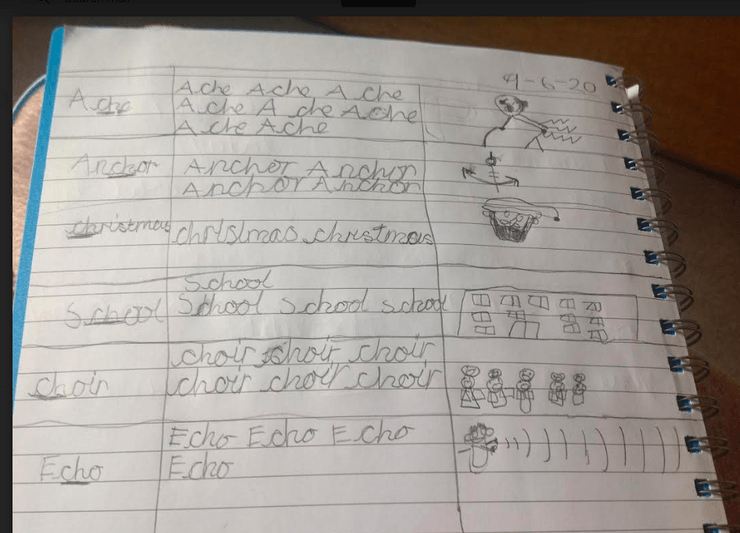 9-6-20
Ache Ache Ache
Ache Ache A che Ache
Ache Ache
Anchor Anchor Anchor
Anchor Anchor
christmas christmas christmas
School
School School School school
choir choir choir
choir choir choir choir
Echo Echo Echo
Echo Echo